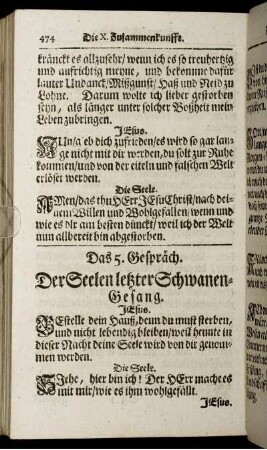 474 Die X. Zusammenkunfft.
kräncket es allzusehr/ wenn ich es so treuhertzig
und auffrichtig meyne, und bekomme dafür
lauter Undanck/ Mißgunst/ Haß und Neid zu
Lohne. Darum wolte ich lieber gestorben
seyn, als länger unter solcher Boßheit mein
Leben zubringen.
JEsus.
NUn/ geb dich zufrieden/ es wird so gar lan-
ge nicht mit dir werden, du solt zur Ruhe
kommen/ und von der eiteln und falschen Welt
erlöset werden.
Die Seele.
AMen/ das thu HErr JEsu Christ/ nach dei-
nem Willen und Wohlgefallen/ wenn und
wie es dir am besten dünckt/ weil ich der Welt
nun allbereit bin abgestorben.
Das 5. Gespräch.
Der Seelen letzter Schwanen-
Gesang.
JEsus.
BEstelle dein Hauß, denn du must sterben,
und nicht lebendig bleiben/ weil heunte in
dieser Nacht deine Seele wird von dir genom-
men werden.
Die Seele.
SIehe, hier bin ich! Der HErr mache es
mit mir/ wie es ihm wohlgefällt.
JEsus.